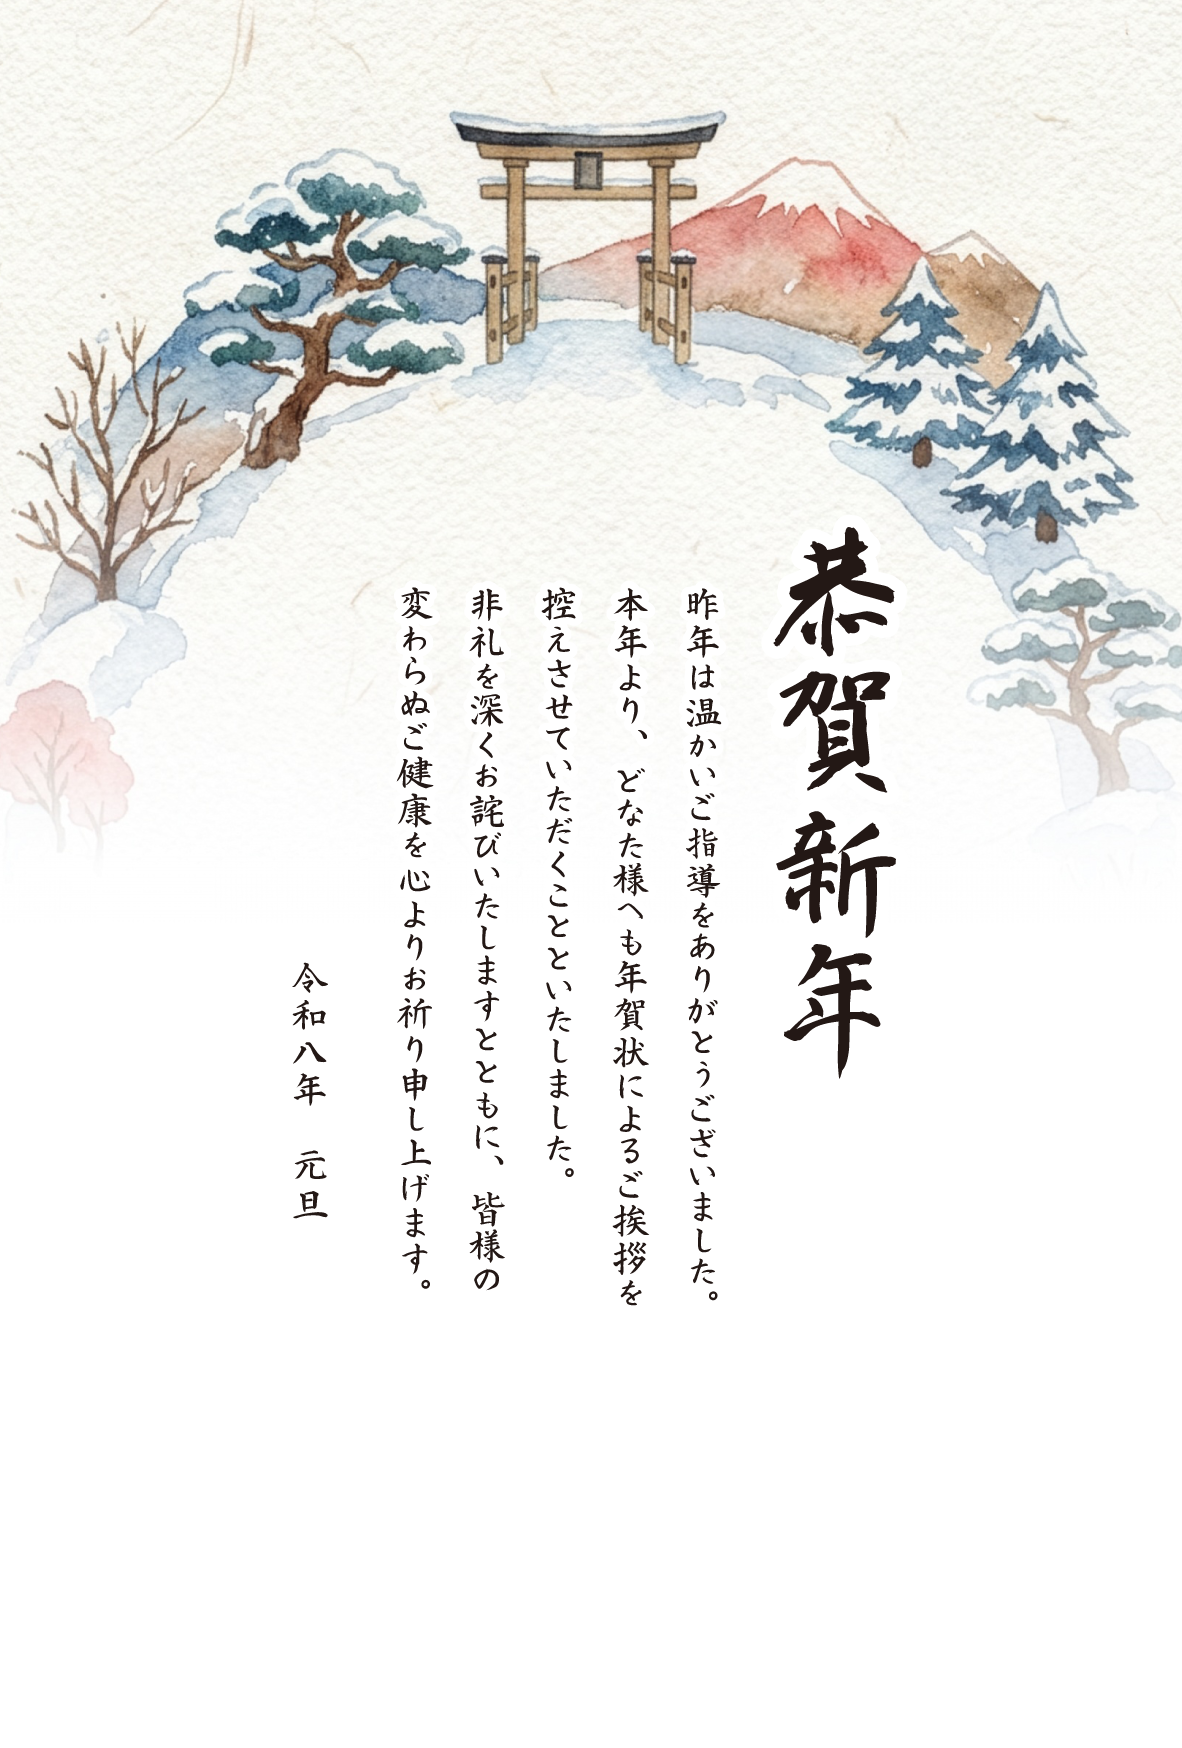 恭賀新年
昨年は温かいご指導をありがとうございました。
本年より、どなた様へも年賀状によるご挨拶を
控えさせていただくことといたしました。
非礼を深くお詫びいたしますとともに、皆様の
変わらぬご健康を心よりお祈り申し上げます。
令和八年　元旦